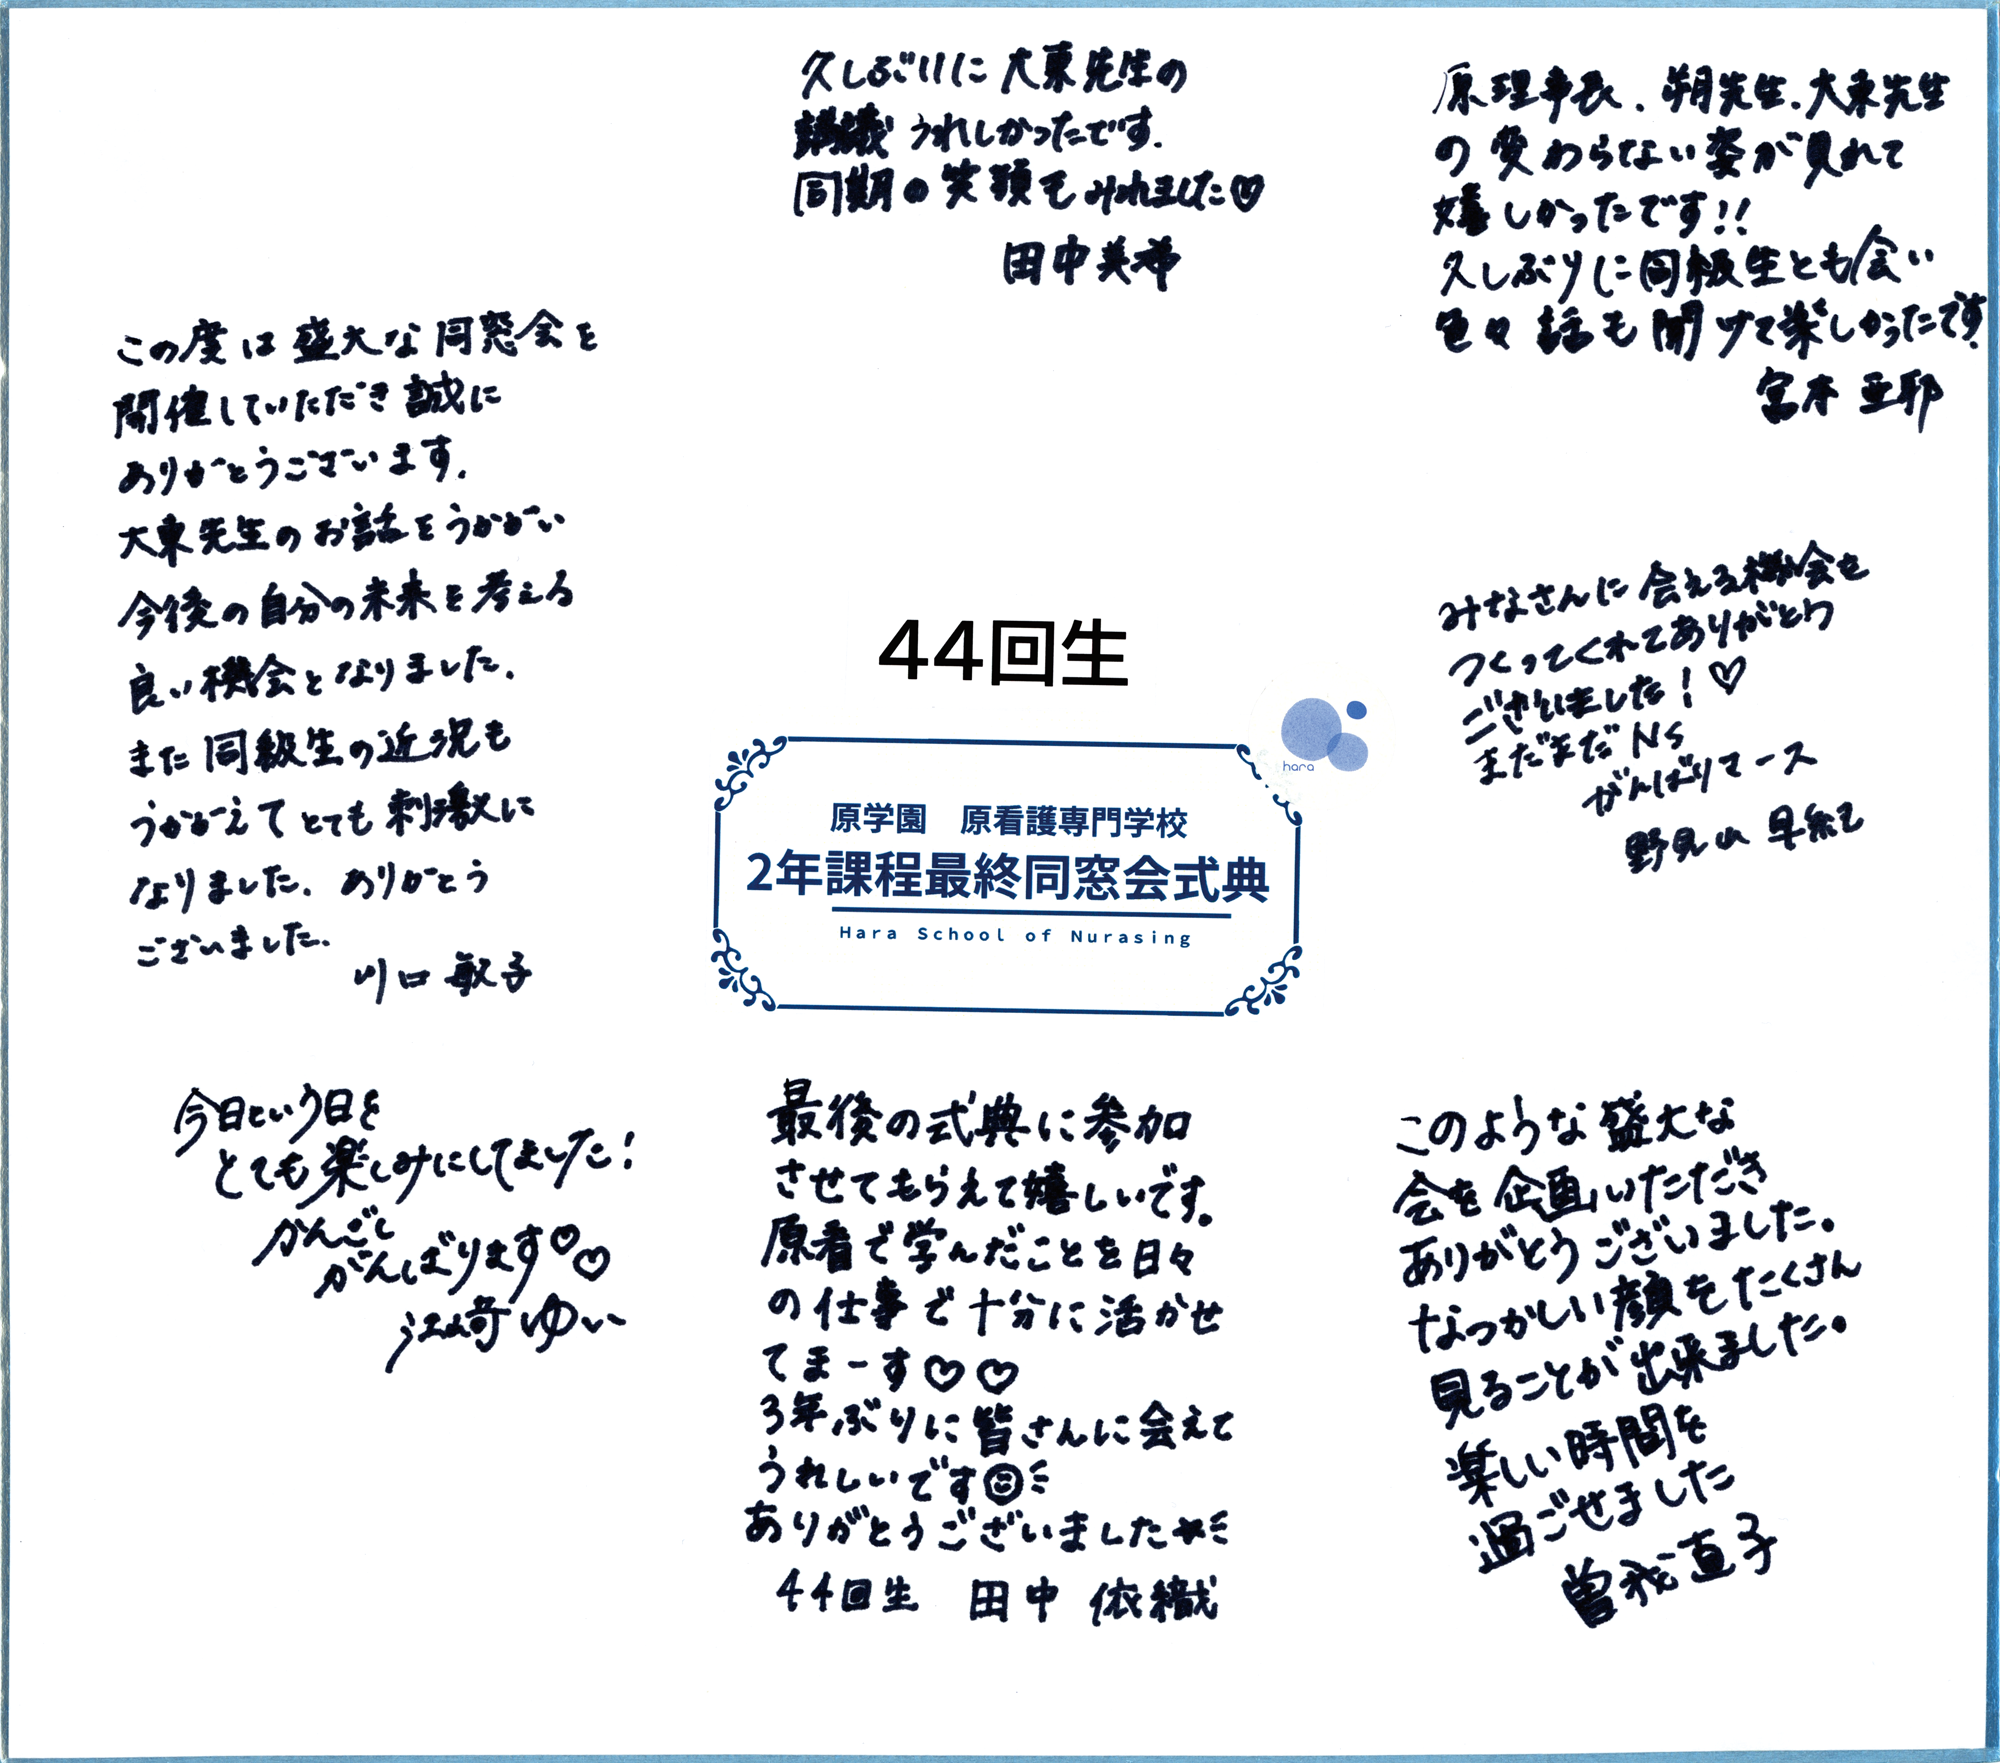 久しぶりに大東先生の
講議うれしかったです.
同期の笑顔もみれました♡
田中美希
原理事長、朔先生、大東先生
の変わらない姿が見れて
嬉しかったです!!
久しぶりに同級生とも会い
色々話も聞けて楽しかったです.
宮本 亜耶
この度は盛大な同窓会を
開催していただき誠に
ありがとうございます.
大東先生のお話をうかがい
今後の自分の未来を考える
良い機会となりました.
また同級生の近況も
うかがえてとても刺激に
なりました. ありがとう
ございました.
川口 敏子
みなさんに会える機会を
つくってくれてありがとう
ございました!♡
まだまだNs
がんばりマース
野見山 早紀
44回生
hara
原学園 原看護専門学校
2年課程最終同窓会式典
Hara School of Nurasing
今日という日を
とても楽しみにしてました!
かんごし
がんばります♡♡
江崎ゆい
最後の式典に参加
させてもらえて嬉しいです。
原看で学んだことを日々
の仕事で十分に活かせ
てまーす♡♡
3年ぶりに皆さんに会えて
うれしいです
ありがとうございました
44回生 田中 依織
このような盛大な
会を企画いただき
ありがとうございました。
なつかしい顔をたくさん
見ることが出来ました。
楽しい時間を
過ごせました
曽我直子